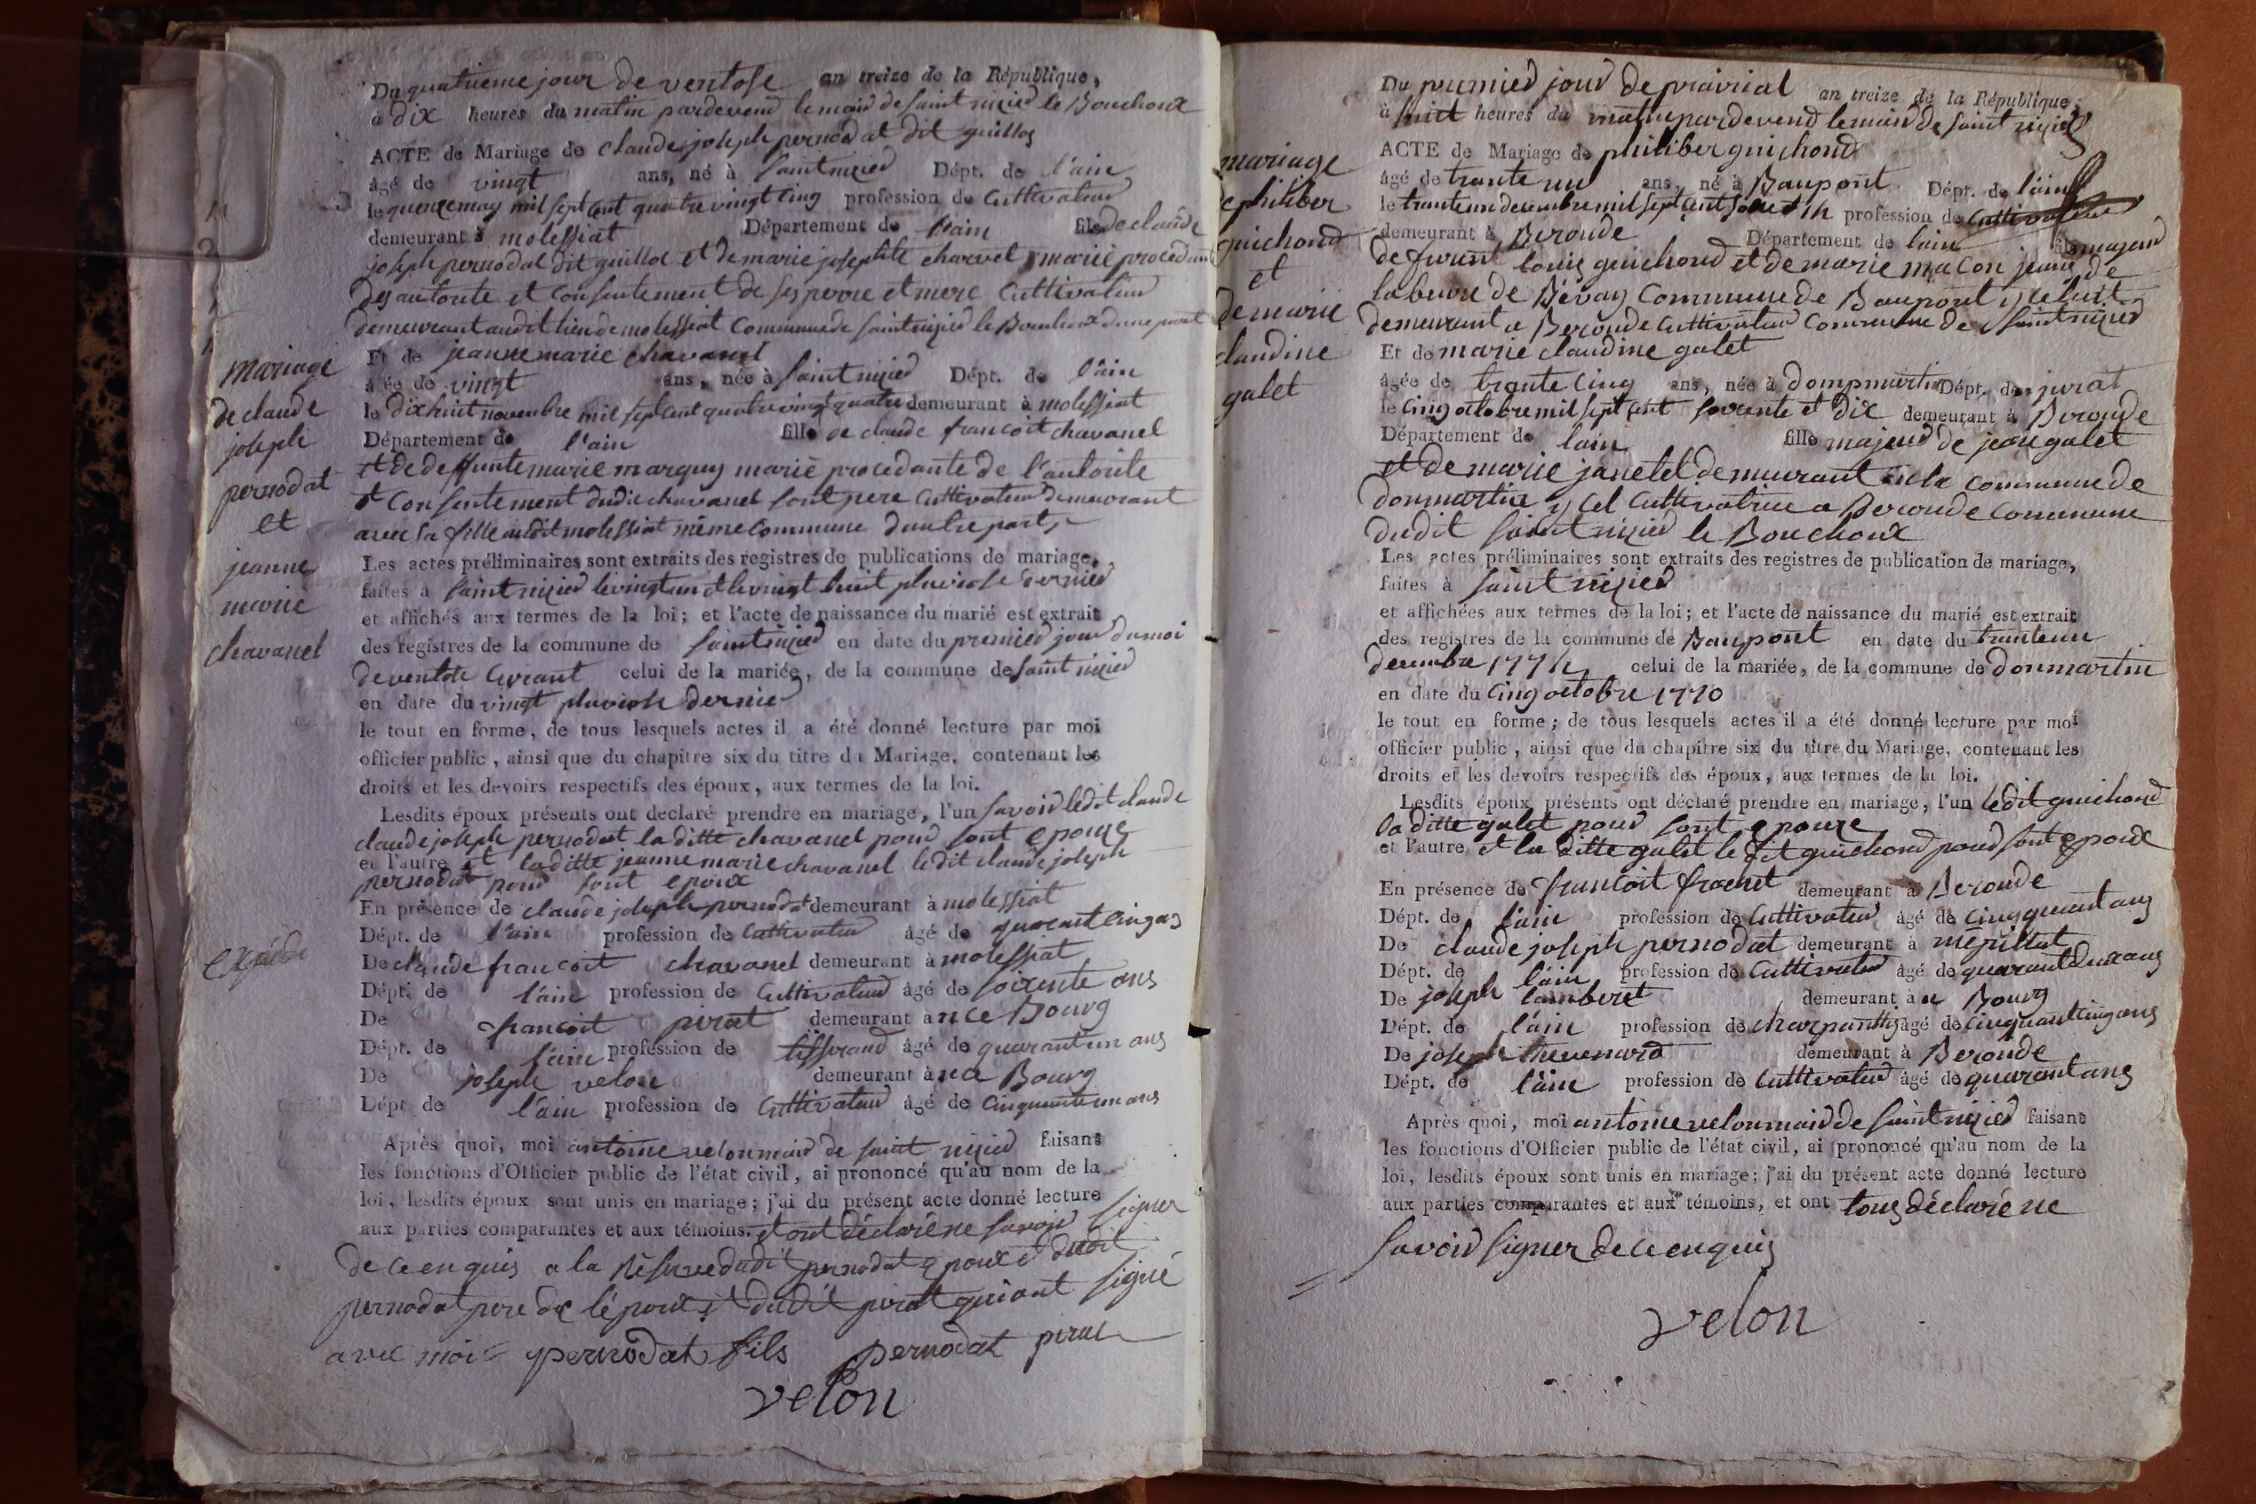 Du quatrieme jour de ventose an treize de la République,
à dix heures du matin pardevend le maid de saint nizied le Bouchoux
ACTE de Mariage de claude joseph pernodat dit guillot
âgé de vingt ans, né à saint nizied Dépt. de l'ain
le quenze may mil sept cent quatre vingt cinq profession de Cultivateur
demeurant à molessiat Département de l'ain fils de claude
joseph pernodat dit guillot et de marie josephte charvet marié procedant
des autorite et consentement de ses perre et mere Cultivateur
demeurant audit lieu de molessiat Commune de saint nizied le Bouchoux dune part
mariage
de claude
joseph
pernodat
et
jeanne
marie
chavanel
Et de jeanne marie chavanel
âgée de vingt ans, née à saint nizied Dépt. de l'ain
le dixhuit novembre mil sept cent quatre vingt quatre demeurant à molessiat
Département de l'ain fille de claude francoit chavanel
et de deffunte marie marguy marié procedante de l'autorite
et Consentement dudit chavanel sont pere Cultivateur demeurant
avec sa fille audit molessiat même commune d'autre part
Les actes préliminaires sont extraits des registres de publications de mariage,
faites à saint nizied le vingt un et le vingt huit pluviose dernied
et affichés aux termes de la loi; et l'acte de naissance du marié est extrait
des registres de la commune de saint nizied en date du premied jour du moi
de ventose Courant celui de la mariée, de la commune de saint nizied
en date du vingt pluviose dernied
le tout en forme, de tous lesquels actes il a été donné lecture par moi
officier public, ainsi que du chapitre six du titre du Mariage, contenant les
droits et les devoirs respectifs des époux, aux termes de la loi.
Lesdits époux présents ont declaré prendre en mariage, l'un savoid ledit claude
claude joseph pernodat la ditte chavanel poud sont epouze
et l'autre et la ditte jeanne marie chavanel ledit claude joseph
pernodat poud sont epoux
En présence de claude joseph pernodat demeurant à molessiat
Dépt. de l'ain profession de Cultivateud âgé de quarante cinq ans
De claude francoit chavanel demeurant à molessiat
Dépt. de l'ain profession de Cultivateud âgé de soixente ans
De francoit pirat demeurant à uce Bourg
Dépt. de l'ain profession de tisserand âgé de quarant un ans
De joseph velon demeurant à uce Bourg
Dépt. de l'ain profession de Cultivateud âgé de Cinquante un ans
Après quoi, moi antoine velon maid de saint nizied faisant
les fonctions d'Officier public de l'état civil, ai prononcé qu'au nom de la
loi, lesdits époux sont unis en mariage; j'ai du présent acte donné lecture
aux parties comparantes et aux témoins. et ont déclaré ne savoid signer
de ce enquis a la réserve dudit pernodat epoux et dudit
pernodat pere de l'époux et dudit pirat qui ont signé
avec moi pernodat fils pernodat pirat
velon
mariage
de philiber
guichond
et
de marie
claudine
galet
Du premied jour de prairial an treize de la République
à huit heures du matin pardevend le maid de saint nizied
ACTE de Mariage de philiber guichond
âgé de trante un ans, né à Baupont Dépt. de l'ain
le trante un decembre mil sept cent profession de Cultivateur
demeurant à Beroude Département de l'ain fils majeud
de louis guichond et de marie macon jeune de
Commune de Baupont y
demeurant a Beroude Cultivateud Commune de saint nizied
Et de marie claudine galet
âgée de trante cinq ans, née à dompmartin Dépt. de jurat
le cinq octobre mil sept cent soixente et dix demeurant à Beroude
Département de l'ain fille majeud de jean galet
et de marie janetet demeurant en la commune de
donmartin y Cel cultivatrice a Beroude Commune
dudit saint nizied le Bouchoux
Les actes préliminaires sont extraits des registres de publication de mariage,
faites à saint nizied
et affichées aux termes de la loi; et l'acte de naissance du marié est extrait
des registres de la commune de Baupont en date du trante un
decembre 1774 celui de la mariée, de la commune de donmartin
en date du cinq octobre 1770
le tout en forme; de tous lesquels actes il a été donné lecture par moi
officier public, ainsi que du chapitre six du titre du Mariage, contenant les
droits et les devoirs respectifs des époux, aux termes de la loi.
Lesdits époux présents ont déclaré prendre en mariage, l'un ledit guichond
la ditte galet poud sont epouze
et l'autre et la ditte galet le dit guichond poud sont epoux
En présence de francoit froment demeurant à Beroude
Dépt. de l'ain profession de Cultivateud âgé de cinqquant ans
De claude joseph pernodat demeurant à mépillat
Dépt. de l'ain profession de Cultivateud âgé de quarant deux ans
De joseph lamberet demeurant à u Bourg
Dépt. de l'ain profession de charpantiy âgé de cinquant cinq ans
De joseph thevenard demeurant à Beroude
Dépt. de l'ain profession de Cultivateud âgé de quarant ans
Après quoi, moi antoine velon maid de saint nizied faisant
les fonctions d'Officier public de l'état civil, ai prononcé qu'au nom de la
loi, lesdits époux sont unis en mariage; j'ai du présent acte donné lecture
aux parties comparantes et aux témoins, et ont tous déclaré ne
savoid signer de ce enquis
velon